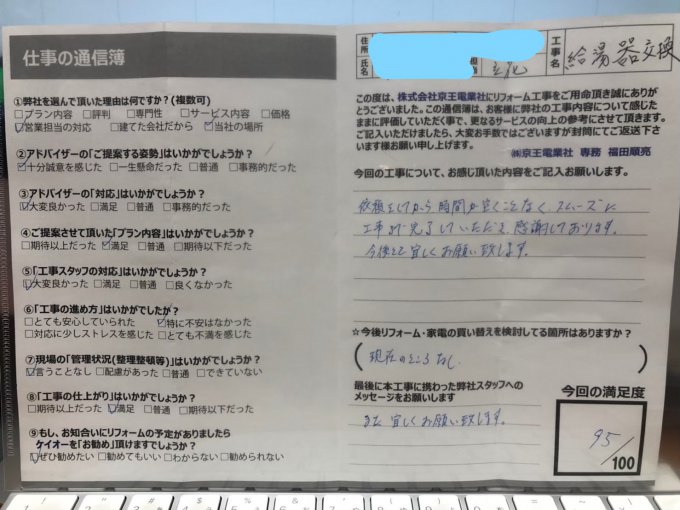 仕事の通信簿
①弊社を選んで頂いた理由は何ですか?(複数可)
□プラン内容 □評判 □専門性 □サービス内容 □価格
☑営業担当の対応 □建てた会社だから ☑当社の場所
②アドバイザーの「ご提案する姿勢」はいかがでしょうか?
☑十分誠意を感じた □一生懸命だった □普通 □事務的だった
③アドバイザーの「対応」はいかがでしょうか?
☑大変良かった □満足 □普通 □事務的だった
④ご提案させて頂いた「プラン内容」はいかがでしょうか?
□期待以上だった ☑満足 □普通 □期待以下だった
⑤「工事スタッフの対応」はいかがでしょうか?
☑大変良かった □満足 □普通 □良くなかった
⑥「工事の進め方」はいかがでしたか?
□とても安心していられた ☑特に不安はなかった
□対応に少しストレスを感じた □とても不満を感じた
⑦現場の「管理状況(整理整頓等)」はいかがでしょうか?
☑言うことなし □配慮があった □普通 □できていない
⑧「工事の仕上がり」はいかがでしょうか?
□期待以上だった ☑満足 □普通 □期待以下だった
⑨もし、お知合いにリフォームの予定がありましたら
ケイオーを「お勧め」頂けますでしょうか?
☑ぜひ勧めたい □勧めてもいい □わからない □勧められない
住所
氏名
工事名
給湯器交換
この度は、株式会社京王電業社にリフォーム工事をご用命頂き誠にありが
とうございました。この通信簿は、お客様に弊社の工事内容について感じた
ままに評価していただく事で、更なるサービスの向上の参考にさせて頂きます。
ご記入いただけましたら、大変お手数ではございますが封筒にてご返送下さ
います様お願い申し上げます。
㈱京王電業社 専務 福田順亮
今回の工事について、お感じ頂いた内容をご記入お願いします。
依頼をしてから時間が空くことなく、スムーズに
工事が完了していただき、感謝しております。
今後とも宜しくお願い致します。
☆今後リフォーム・家電の買い替えを検討してる箇所はありますか?
(現在のところなし)
最後に本工事に携わった弊社スタッフへの
メッセージをお願いします
また宜しくお願い致します。
今回の満足度
95/100